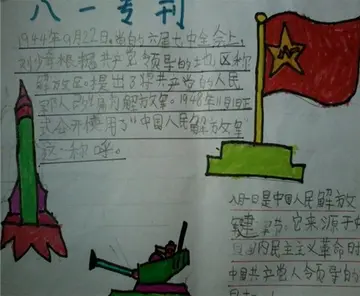 八一专刊
1944年9月22日,党的六届七中全会上,
刘少奇根据共产党领导的地区称
解放区,提出了将共产党的人民
军队改为解放军。1948年11月1日正
式公开使用了"中国人民解放军"
这一称呼。
八月一日是中国人民解放
军建军节。它来源于
国内民主主义革命的
中国共产党人领导的